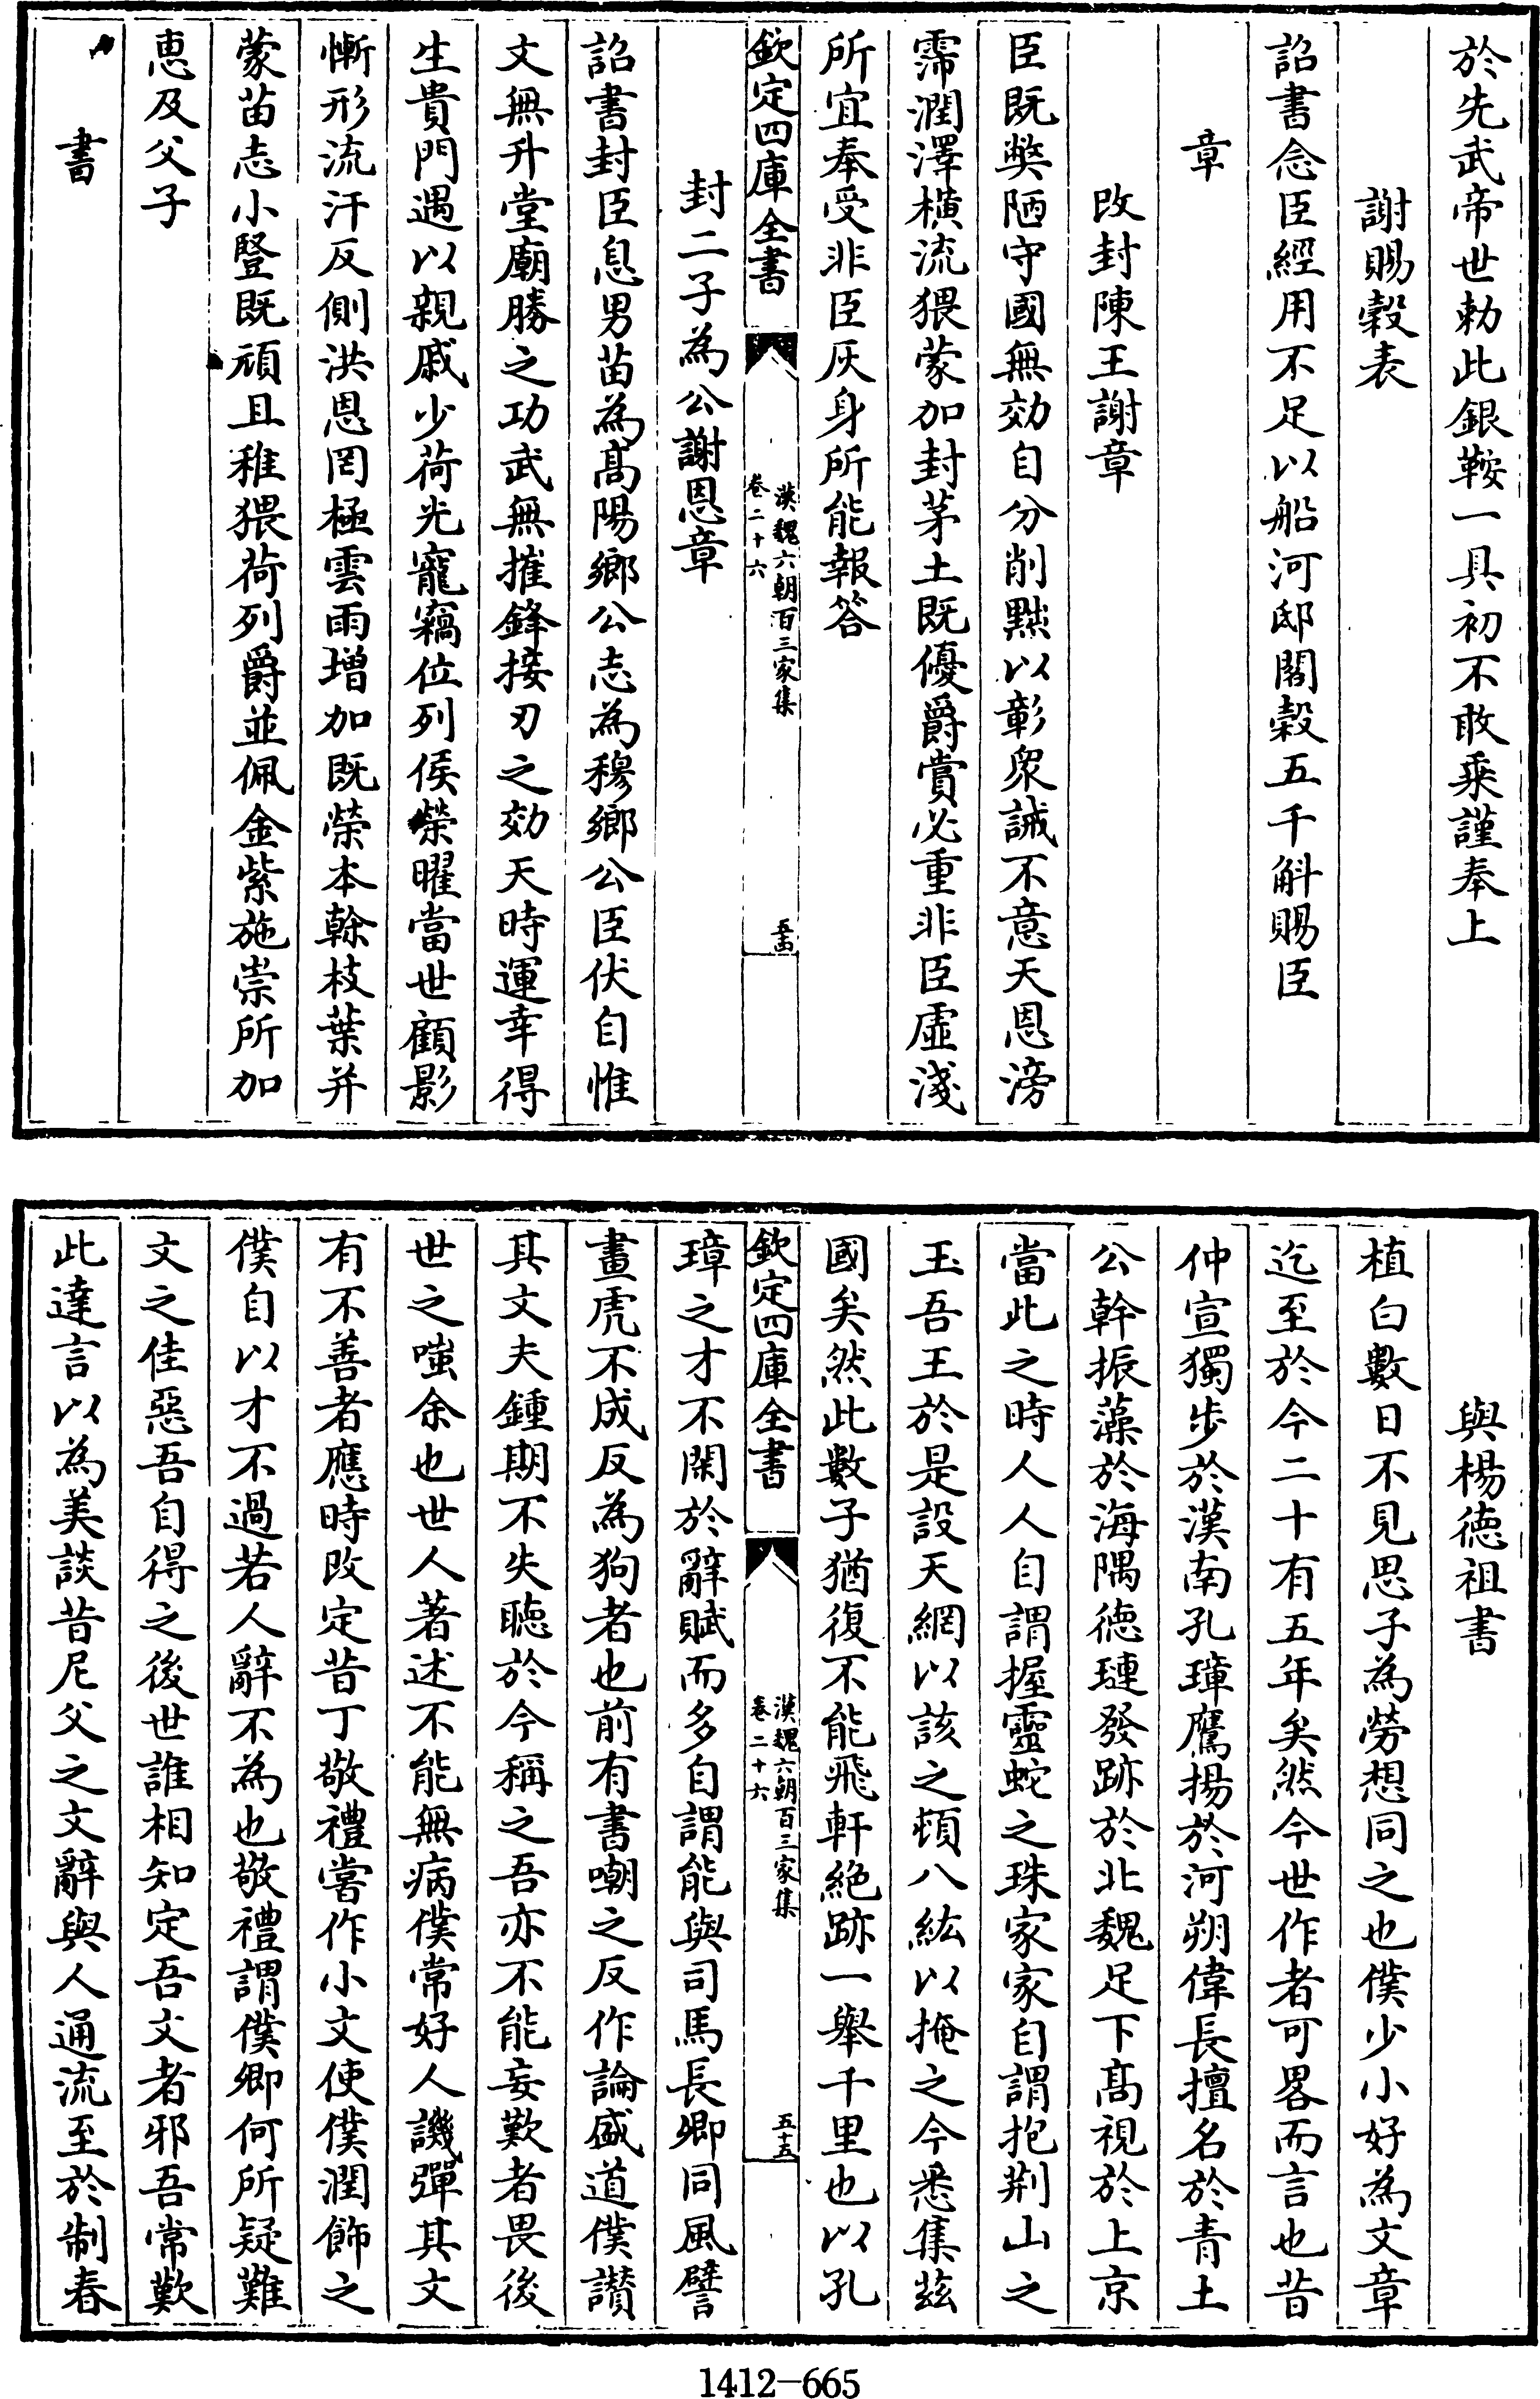 於先武帝世勅此銀鞍一具初不敢乘謹奉上
謝賜穀表
詔書念臣經用不足以船河邸閣穀五千斛賜臣
章
改封陳王謝章
臣既弊陋守國無効自分削黜以彰衆誡不意天恩滂
霈潤澤橫流猥蒙加封茅土既優爵賞必重非臣虛淺
所宜奉受非臣灰身所能報答
欽定四庫全書
漢魏六朝百三家集
卷二十六
五十四
封二子為公謝恩章
詔書封臣息男苗為髙陽鄉公志為穆鄉公臣伏自惟
文無升堂廟勝之功武無摧鋒接刃之効天時運幸得
生貴門遇以親戚少荷光寵竊位列侯榮曜當世顧影
慚形流汗反側洪恩罔極雲雨增加既榮本榦枝葉并
蒙苗志小豎既頑且稚猥荷列爵並佩金紫施崇所加
惠及父子
書
與楊徳祖書
植白數日不見思子為勞想同之也僕少小好為文章
迄至於今二十有五年矣然今世作者可畧而言也昔
仲宣獨步於漢南孔璋鷹揚於河朔偉長擅名於青土
公幹振藻於海隅徳璉發跡於北魏足下髙視於上京
當此之時人人自謂握靈蛇之珠家家自謂抱荆山之
玉吾王於是設天網以該之頓八紘以掩之今悉集兹
國矣然此數子猶復不能飛軒絶跡一舉千里也以孔
欽定四庫全書
漢魏六朝百三家集
卷二十六
五十五
璋之才不閑於辭賦而多自謂能與司馬長卿同風譬
畫虎不成反為狗者也前有書嘲之反作論盛道僕讃
其文夫鍾期不失聴於今稱之吾亦不能妄歎者畏後
世之嗤余也世人著述不能無病僕常好人譏彈其文
有不善者應時改定昔丁敬禮嘗作小文使僕潤飾之
僕自以才不過若人辭不為也敬禮謂僕卿何所疑難
文之佳惡吾自得之後世誰相知定吾文者邪吾常歎
此達言以為美談昔尼父之文辭與人通流至於制春
1412-665